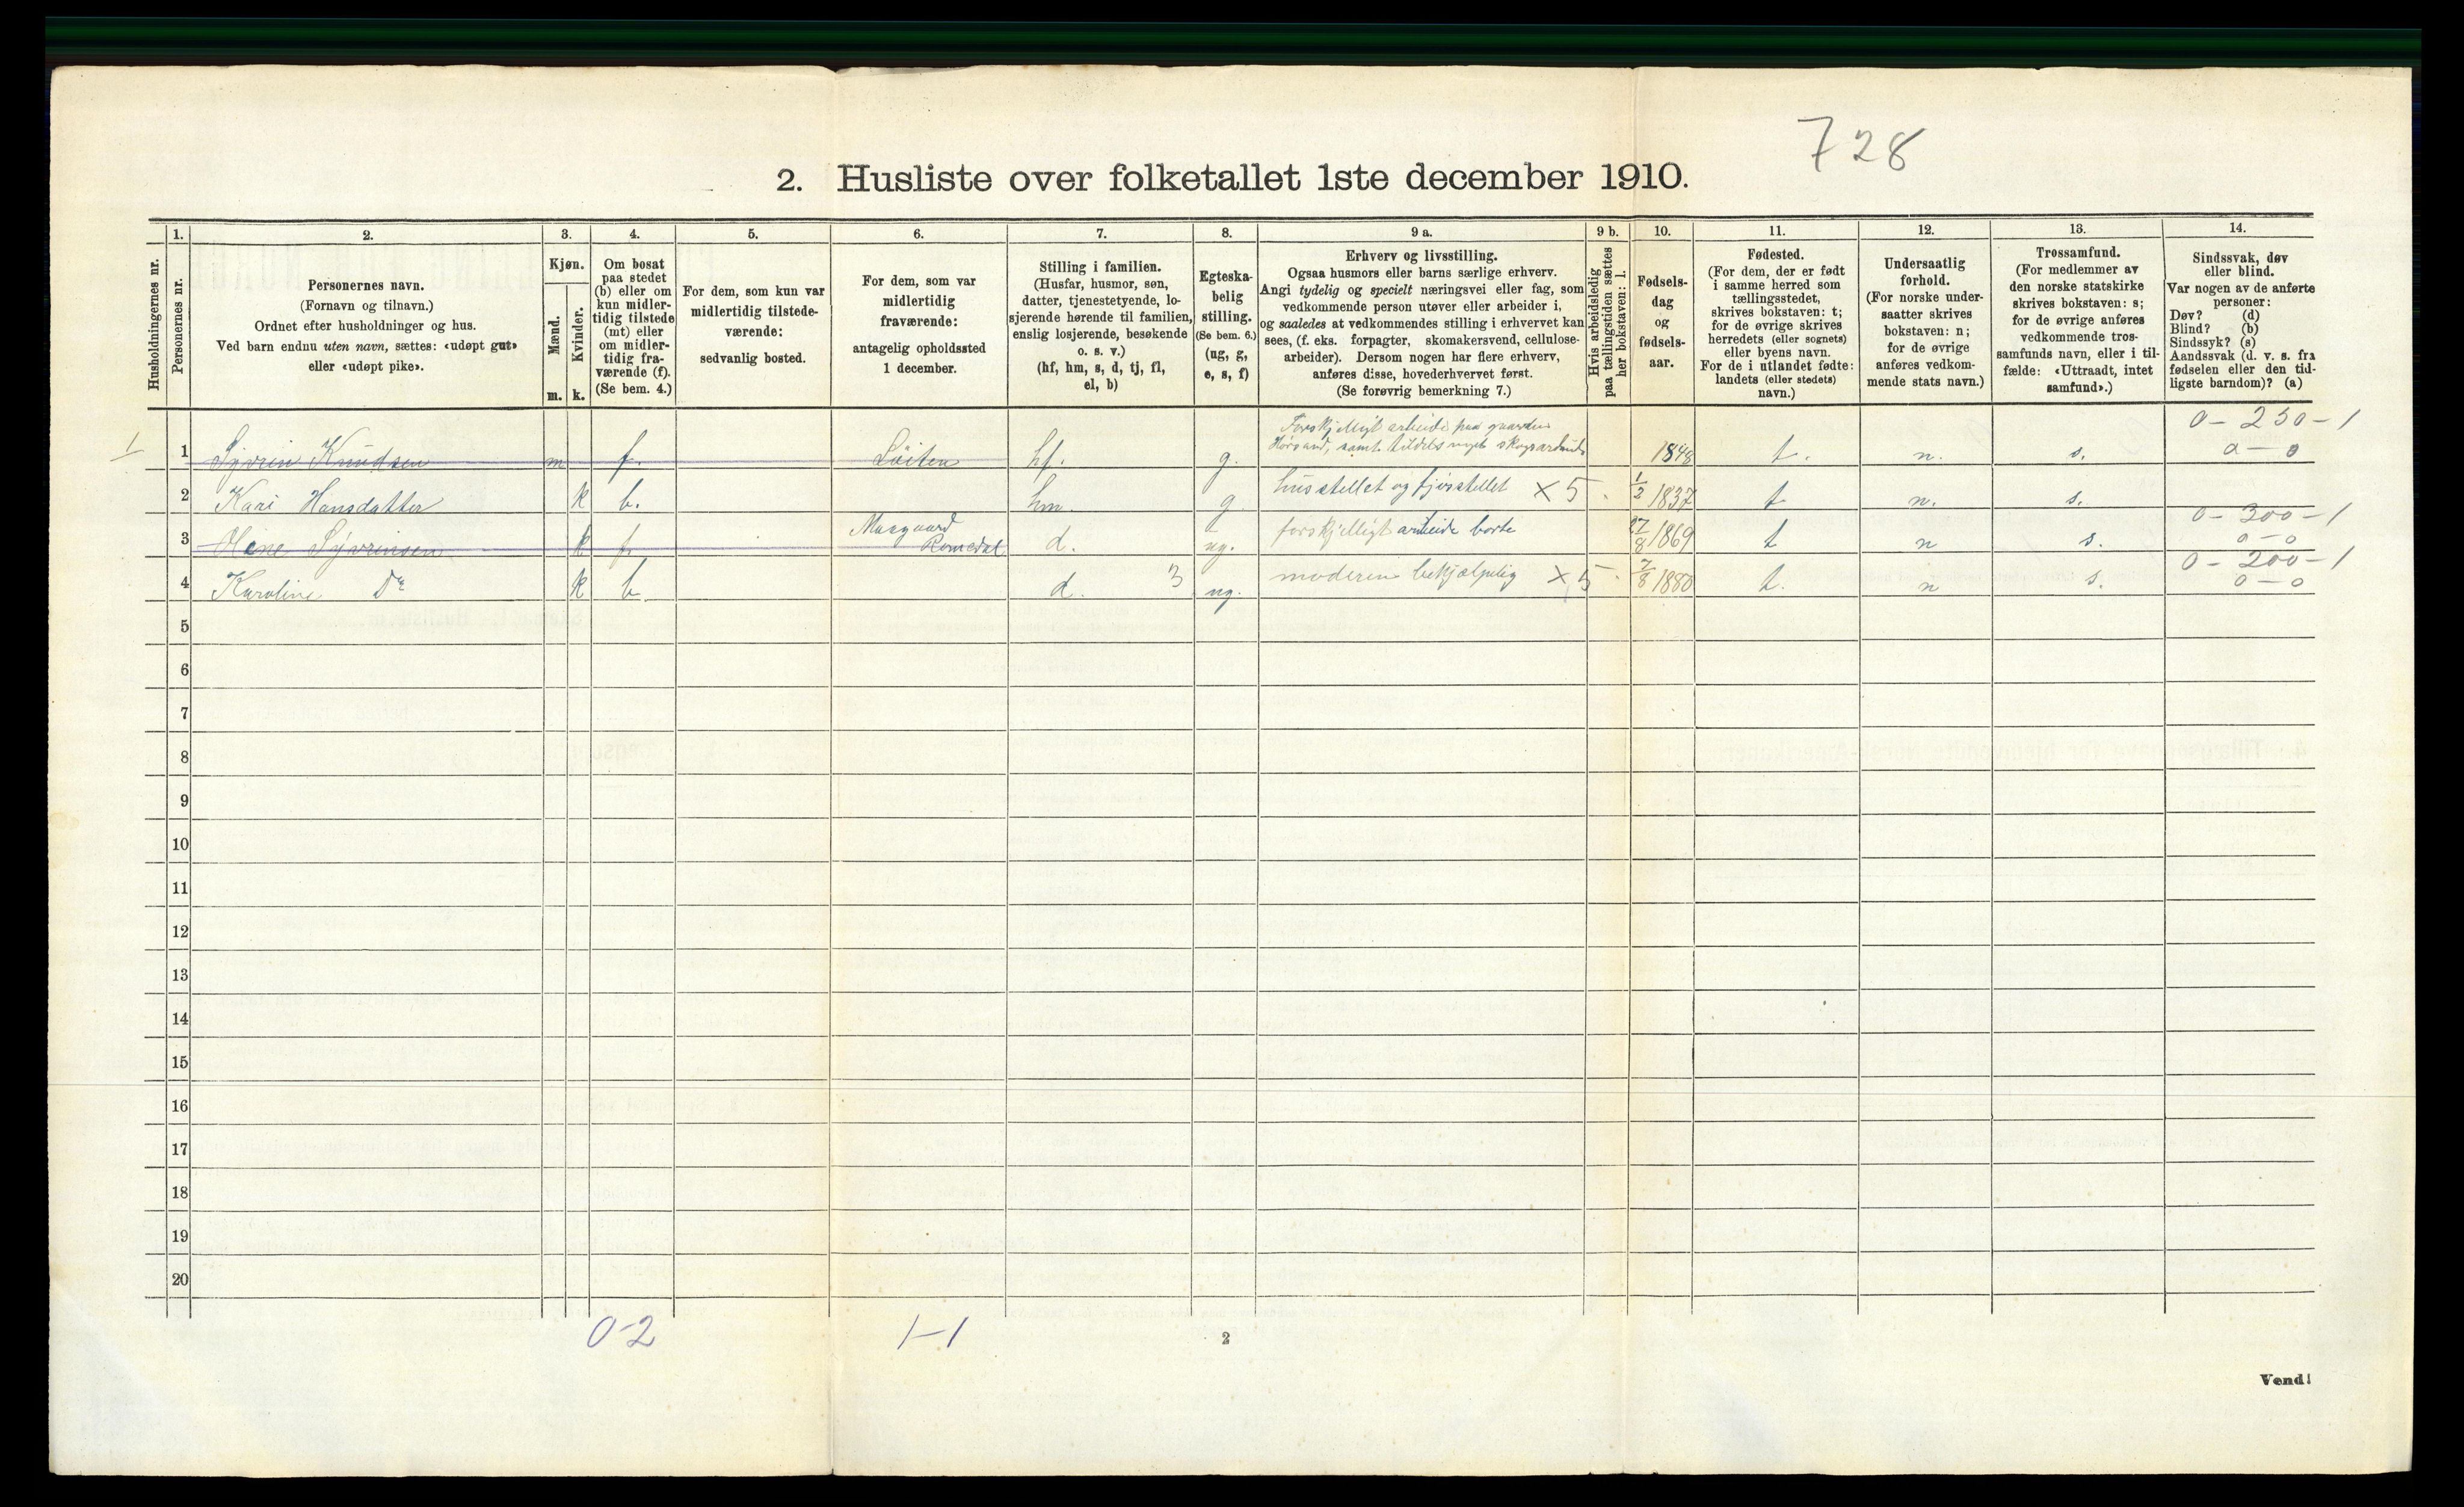 728
2. Husliste over folketallet 1ste december 1910.
Husholdningernes nr.
1.
Personernes nr.
2.
Personernes navn.
(Fornavn og tilnavn.)
Ordnet efter husholdninger og hus.
Ved barn endnu uten navn, sættes: «udøpt gut»
eller «udøpt pike».
3.
Kjøn.
Mænd.
Kvinder.
m. k.
4.
Om bosat
paa stedet
(b) eller om
kun midler-
tidig tilstede
(mt) eller
om midler-
tidig fra-
værende (f).
(Se bem. 4.)
5.
For dem, som kun var
midlertidig tilstede-
værende:
sedvanlig bosted.
6.
For dem, som var
midlertidig
fraværende:
antagelig opholdssted
1 december.
7.
Stilling i familien.
(Husfar, husmor, søn,
datter, tjenestetyende, lo-
sjerende hørende til familien,
enslig losjerende, besøkende
o. s. v.)
(hf, hm, s, d, tj, fl,
el, b)
8.
Egteska-
belig
stilling.
(Se bem. 6.)
(ug, g,
e, s, f)
9 a.
Erhverv og livsstilling.
Ogsaa husmors eller barns særlige erhverv.
Angi tydelig og specielt næringsvei eller fag, som
vedkommende person utøver eller arbeider i,
og saaledes at vedkommendes stilling i erhvervet kan
sees, (f. eks. forpagter, skomakersvend, cellulose-
arbeider). Dersom nogen har flere erhverv,
anføres disse, hovederhvervet først.
(Se forøvrig bemerkning 7.)
9 b.
Hvis arbeidsledig
paa tællingstiden sættes
her bokstaven: l.
10.
Fødsels-
dag
og
fødsels-
aar.
11.
Fødested.
(For dem, der er født
i samme herred som
tællingsstedet,
skrives bokstaven: t;
for de øvrige skrives
herredets (eller sognets)
eller byens navn.
For de i utlandet fødte:
landets (eller stedets)
navn.)
12.
Undersaatlig
forhold.
(For norske under-
saatter skrives
bokstaven: n;
for de øvrige
anføres vedkom-
mende stats navn.)
13.
Trossamfund.
(For medlemmer av
den norske statskirke
skrives bokstaven: s;
for de øvrige anføres
vedkommende tros-
samfunds navn, eller i til-
fælde: «Uttraadt, intet
samfund».)
14.
Sindssvak, døv
eller blind.
Var nogen av de anførte
personer:
Døv? (d)
Blind? (b)
Sindssyk? (s)
Aandssvak (d. v. s. fra
fødselen eller den tid-
ligste barndom)? (a)
Forskjelligt arbeide paa gaarden 0-250-1
1 1 Syvrin Knudsen m f. Løiten hf. g. samt tildels noget skogsarbeide 1848 t. n. s. 0-0
2 Kari Hansdatter k b. hm. g husstellet og fjøsstellet X 5. 1/2 1837 t n. s.
Romedal 0-300-1
3 Syvrinsen k f d. ug. forskjelligt arbeide borte 27/8 1869 t n s. 0-0
0-200-1
4 Karoline Do k b. d. 3 ug. moderen behjælpelig X 5. 7/8 1880 t. n s. 0-0
5
6
7
8
9
10
11
12
13
14
15
16
17
18
19
20
0-2 1-1
2
Vend!